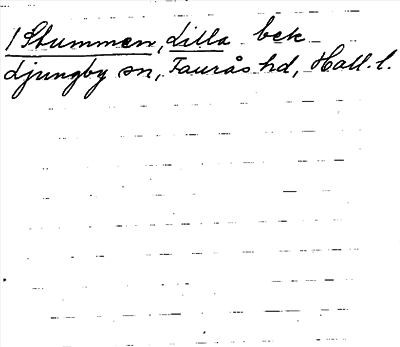 /Stummen, Lilla bek
Ljungby sn, Faurås hd, Hall. l.